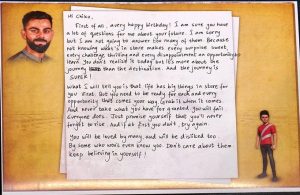 Hi Chiku,
First of all, a very happy birthday! I am sure you have
a lot of questions for me about your future. I am sorry
but I am not going to answer too many of them. Because
not knowing what's in store makes every surprise sweet,
every challenge thrilling and every disappointment an opportunity to
learn. You don't realise it today but it's more about the
journey than the destination. And the journey is
SUPER!
What I will tell you is that life has big things in store for
you Virat. But you need to be ready for each and every
opportunity that comes your way. Grab it when it comes.
And never take what you have for granted. You will fail.
Everyone does. Just promise yourself that you'll never
forget to rise. And if at first you don't, try again.
You will be loved by many and will be disliked too.
By some who don't even know you. Don't care about them.
Keep believing in yourself!